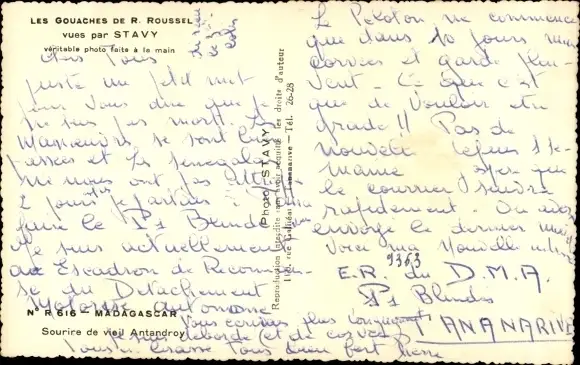 LES GOUACHES DE R. ROUSSEL
vues par STAVY
véritable photo faite à la main
Chers Tous
juste un petit mot
pour vous dire que je
ne suis pas mort. Les
Manœuvres se sont bien
passées et les Senegalais
ne nous ont pas
2 jours après je partais
faire le P1 Blindé
Je suis actuellement
au Escadron de Reconnais-
se du Détachement
Motorisé Autonome
N° R 616 - MADAGASCAR
Sourire de vieil Antandroy
Photo STAVY
Reproduction interdite non avoir acquitté les droits d'auteur
rue Galliéni Tananarive - Tél. 26-28
Le Peloton ne commence
que dans 10 jours
corvées et garde pleu-
vent - Ce que c'est
que de vouloir être
gradé !! Pas de
nouvelle reçues 1 se-
maine espère que
le courrier suivra
rapidement. On avez
envoyé le dernier
Voici ma nouvelle
E.R. 9363 du D.M.A.
P1 Blindés
TANANARIVE
Vous écrirais plus longuement
je suis débordé (et de corvées)
Vous embrasse Tous bien fort Pierre